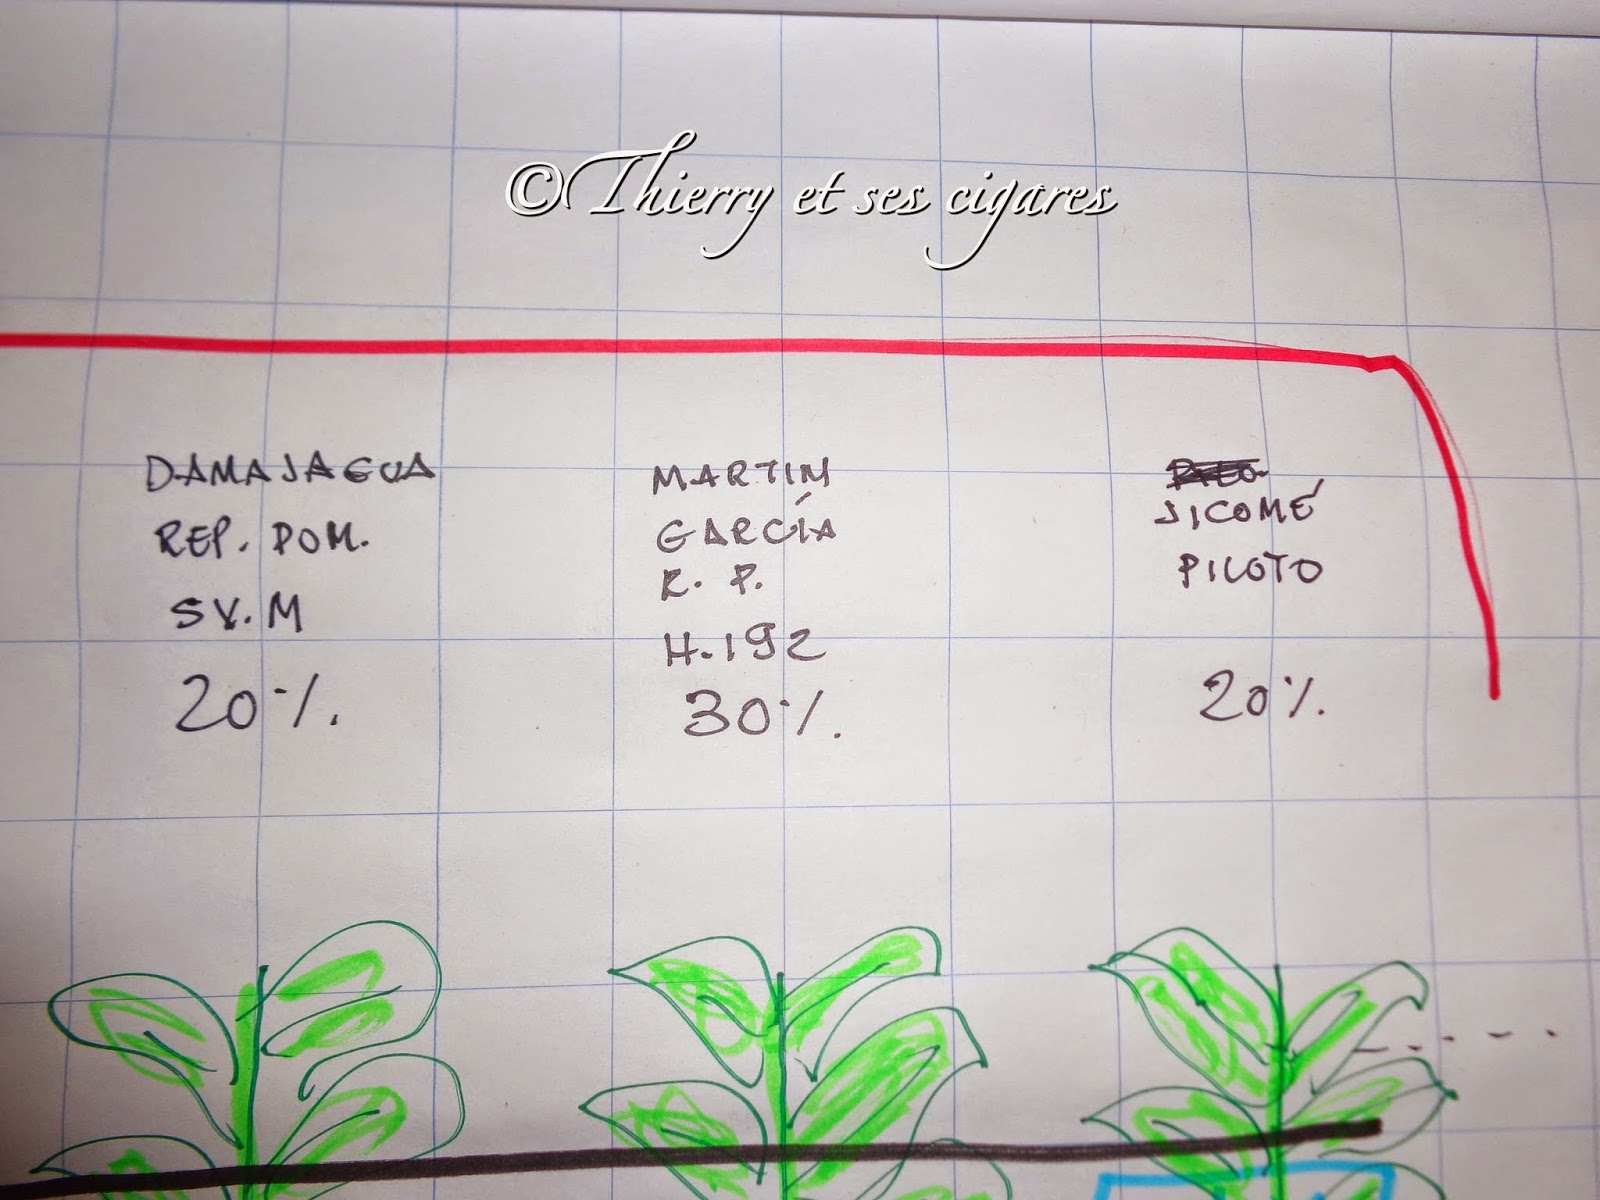 ©Thierry et ses cigares
DAMAJAGUA
REP. DOM.
SV. M
20%.
MARTIN
GARCÍA
R. P.
H. 192
30%.
JICOMÉ
PILOTO
20%.